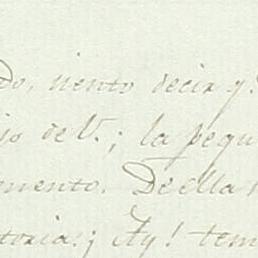 do, siento decir q.
io de V.; la pequ
omento. De ella
toria; Ay! tem